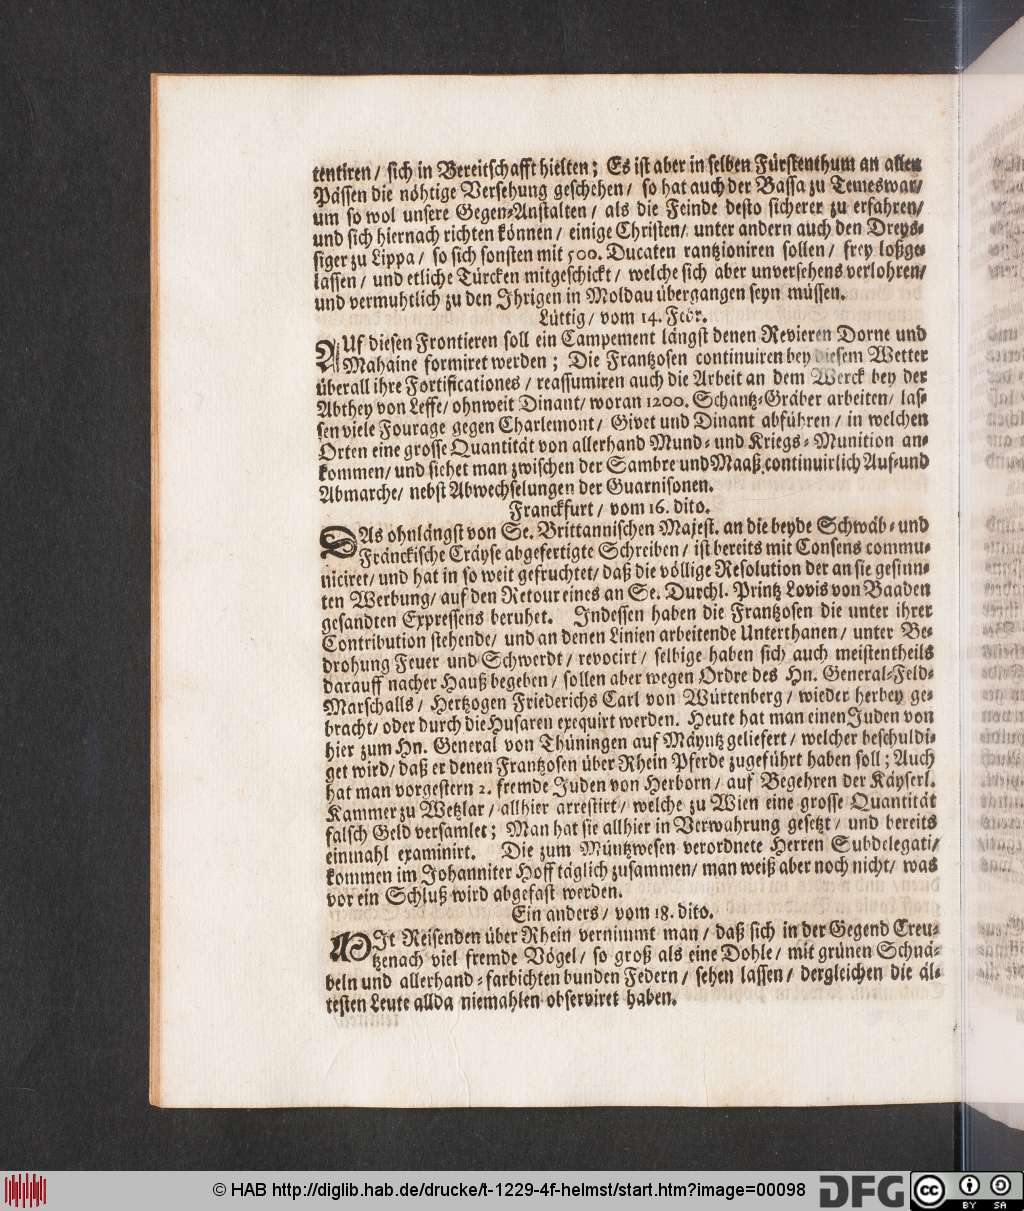 tentiren / sich in Bereitschafft hielten; Es ist aber in selben Fürstenthum an allen
Pässen die nöhtige Versehung geschehen / so hat auch der Bassa zu Temeswar/
um so wol unsere Gegen-Anstalten / als die Feinde desto sicherer zu erfahren/
und sich hiernach richten können / einige Christen / unter andern auch den Dreys-
siger zu Lippa / so sich sonsten mit 500. Ducaten rantzioniren sollen / frey loßge-
lassen / und etliche Türcken mitgeschickt / welche sich aber unversehens verlohren/
und vermuhtlich zu den Ihrigen in Moldau übergangen seyn müssen.
Lüttig / vom 14. Febr.
AUf diesen Frontieren soll ein Campement längst denen Revieren Dorne und
Mahaine formiret werden ; Die Frantzosen continuiren bey diesem Wetter
überall ihre Fortificationes / reassumiren auch die Arbeit an dem Werck bey der
Abthey von Leffe / ohnweit Dinant / woran 1200. Schantz-Gräber arbeiten / las-
sen viele Fourage gegen Charlemont / Givet und Dinant abführen / in welchen
Orten eine grosse Quantität von allerhand Mund- und Kriegs-Munition an-
kommen / und siehet man zwischen der Sambre und Maaß continuirlich Auf-und
Abmarche / nebst Abwechselungen der Guarnisonen.
Franckfurt / vom 16. dito.
DAs ohnlängst von Se. Brittannischen Majest. an die beyde Schwäb- und
Fränckische Cräyse abgefertigte Schreiben / ist bereits mit Consens commu-
niciret / und hat in so weit gefruchtet / daß die völlige Resolution der an sie gesinn-
ten Werbung / auf den Retour eines an Se. Durchl. Printz Lovis von Baaden
gesandten Expressens beruhet. Indessen haben die Frantzosen die unter ihrer
Contribution stehende / und an denen Linien arbeitende Unterthanen / unter Be-
drohung Feuer und Schwerdt / revocirt / selbige haben sich auch meistentheils
darauff nacher Hauß begeben / sollen aber wegen Ordre des Hn. General-Feld-
Marschalls / Hertzogen Friederichs Carl von Würtenberg / wieder herbey ge-
bracht / oder durch die Husaren exequirt werden. Heute hat man einen Juden von
hier zum Hn. General von Thüningen auf Mäyntz geliefert / welcher beschuldi-
get wird / daß er denen Frantzosen über Rhein Pferde zugeführt haben soll ; Auch
hat man vorgestern 2. fremde Juden von Herborn / auf Begehren der Käyserl.
Kammer zu Wetzlar / allhier arrestirt / welche zu Wien eine grosse Quantität
falsch Geld versamlet ; Man hat sie allhier in Verwahrung gesetzt / und bereits
einmahl examinirt. Die zum Müntzwesen verordnete Herren Subdelegati /
kommen im Johanniter Hoff täglich zusammen / man weiß aber noch nicht / was
vor ein Schluß wird abgefast werden.
Ein anders / vom 18. dito.
MIt Reisenden über Rhein vernimmt man / daß sich in der Gegend Creu-
tzenach viel fremde Vögel / so groß als eine Dohle / mit grünen Schnä-
beln und allerhand-farbichten bunden Federn / sehen lassen / dergleichen die äl-
testen Leute allda niemahlen observiret haben.
© HAB http://diglib.hab.de/drucke/t-1229-4f-helmst/start.htm?image=00098
DFG
cc BY SA